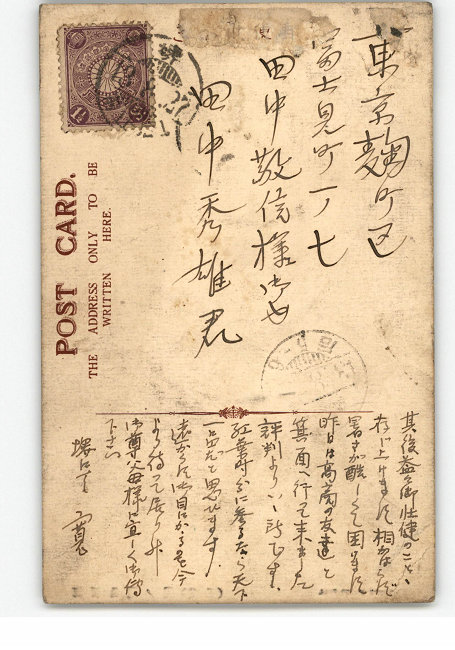 東京麹町区
富士見町一ノ七
田中敬信様方
田中秀雄君
POST CARD.
THE ADDRESS ONLY TO BE
WRITTEN HERE.
其後益々御壮健のことゝ
存じ上げます 相かはらず
暑さが酷しくて困ります
昨日は高商の友達と
箕面へ行って来ました
評判よりいゝ所です
紅葉時分に参るなら天下
一品だと思ひます
遠からず御目にかゝるを今
より待って居りや
御尊父母様に宜しく御傳
下さい